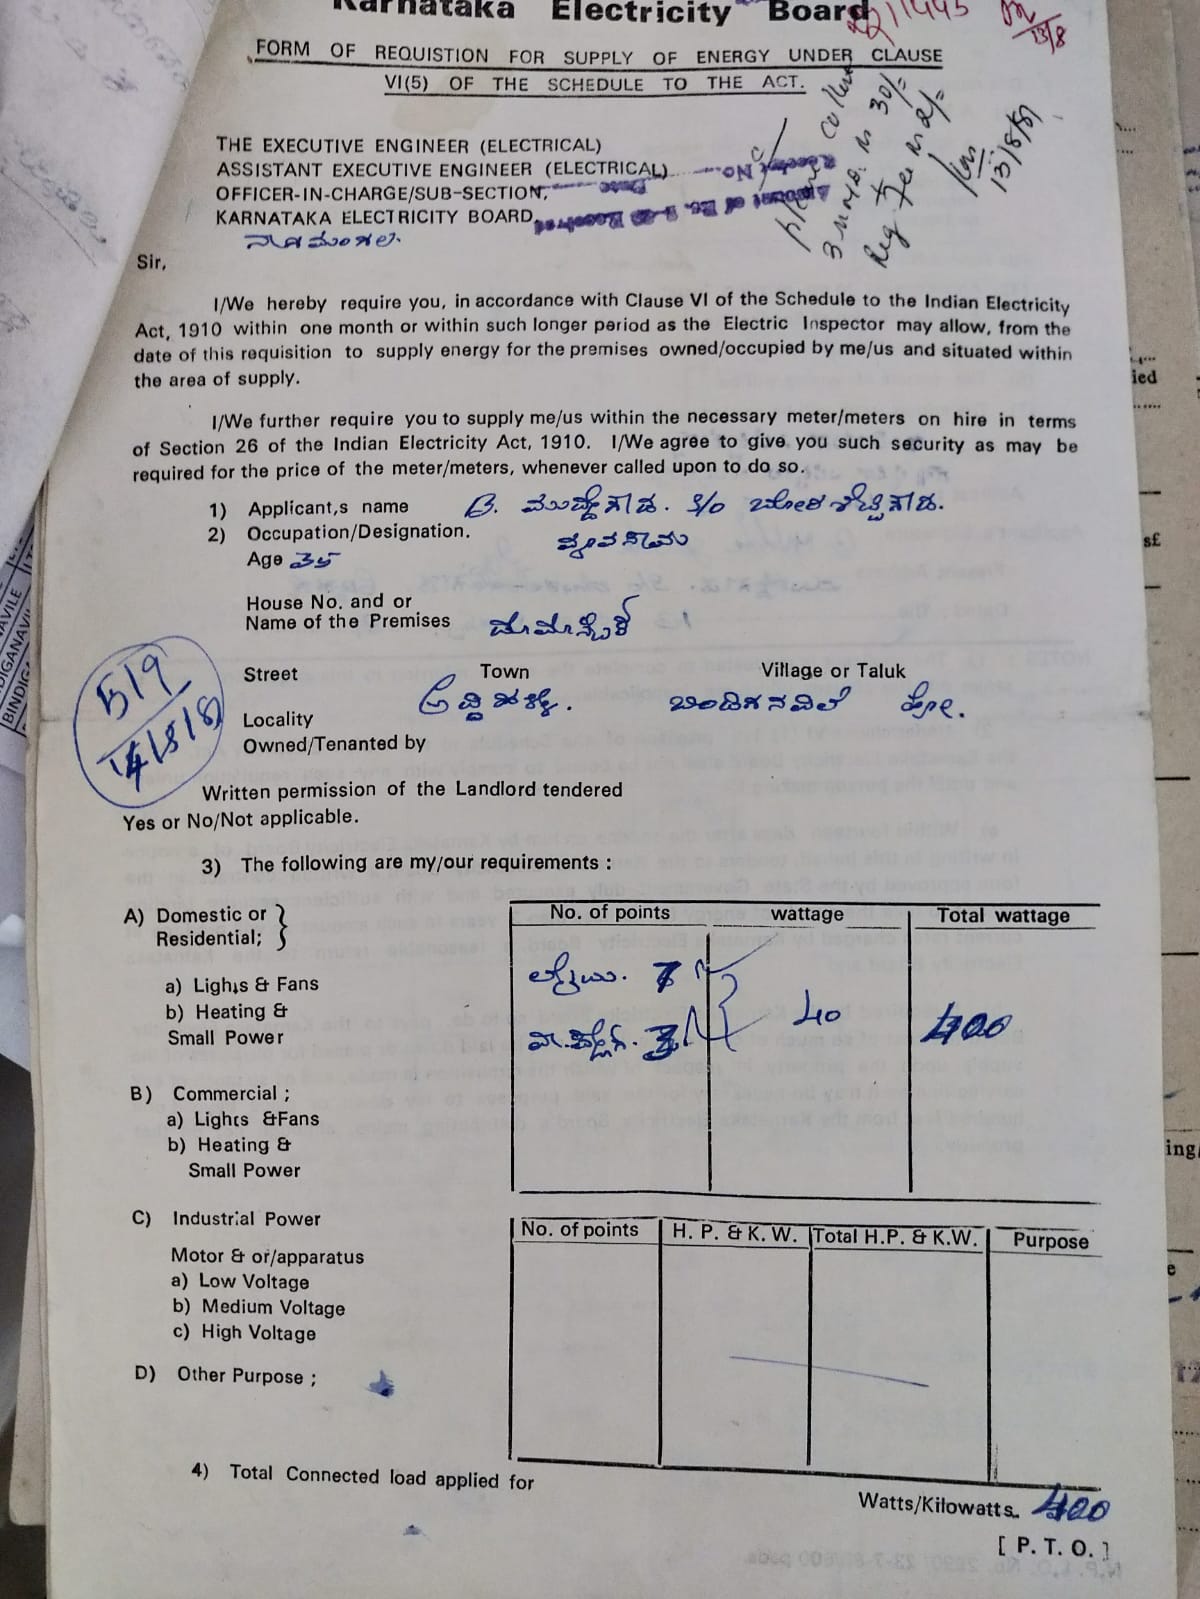 Karnataka Electricity Board
13/8
FORM OF REQUISTION FOR SUPPLY OF ENERGY UNDER CLAUSE
VI(5) OF THE SCHEDULE TO THE ACT.
please collect
3 mmd. Rs 30/=
Reg Fee Rs 2/=
13/8/81
THE EXECUTIVE ENGINEER (ELECTRICAL)
ASSISTANT EXECUTIVE ENGINEER (ELECTRICAL)
Receipt No.
OFFICER-IN-CHARGE/SUB-SECTION,
Date
KARNATAKA ELECTRICITY BOARD,
Amount of Rs. Received
ನಾಗಮಂಗಲ.
Sir,
I/We hereby require you, in accordance with Clause VI of the Schedule to the Indian Electricity
Act, 1910 within one month or within such longer period as the Electric Inspector may allow, from the
date of this requisition to supply energy for the premises owned/occupied by me/us and situated within
the area of supply.
I/We further require you to supply me/us within the necessary meter/meters on hire in terms
of Section 26 of the Indian Electricity Act, 1910. I/We agree to give you such security as may be
required for the price of the meter/meters, whenever called upon to do so.
1) Applicant,s name B. ಮುದ್ದೇಗೌಡ. S/o ಬೋರಶೆಟ್ಟಿಗೌಡ.
2) Occupation/Designation. ವ್ಯವಸಾಯ
Age 35
House No. and or
Name of the Premises
Street Town Village or Taluk
ಬಿಂಡಿಗನವಿಲೆ ಹೋ.
Locality
Owned/Tenanted by
519
14/8/81
Written permission of the Landlord tendered
Yes or No/Not applicable.
3) The following are my/our requirements :
A) Domestic or
Residential;
No. of points wattage Total wattage
a) Lights & Fans
ಲೈಟು. 7
b) Heating &
Small Power
40 400
B) Commercial ;
a) Lights &Fans
b) Heating &
Small Power
C) Industrial Power
No. of points H. P. & K. W. Total H.P. & K.W. Purpose
Motor & or/apparatus
a) Low Voltage
b) Medium Voltage
c) High Voltage
D) Other Purpose ;
4) Total Connected load applied for
Watts/Kilowatts. 400
[ P. T. O. ]